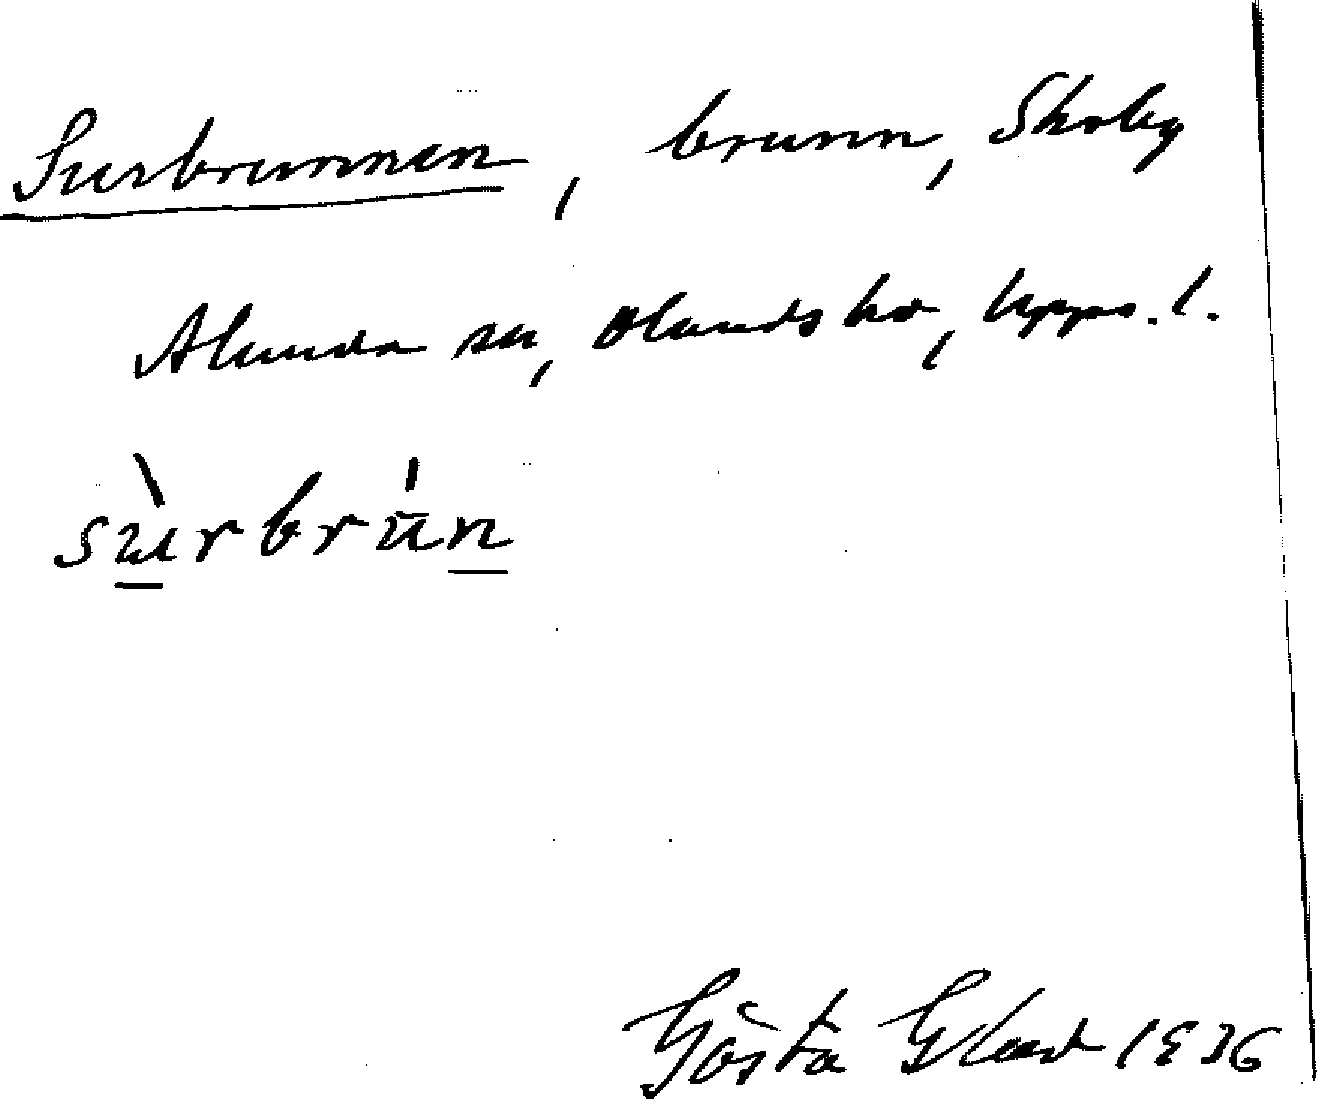 Surbrunnen, brunn, Skoby
Alunda sn, Olands hd, Upps. l.
sùrbrún
Gösta 1936